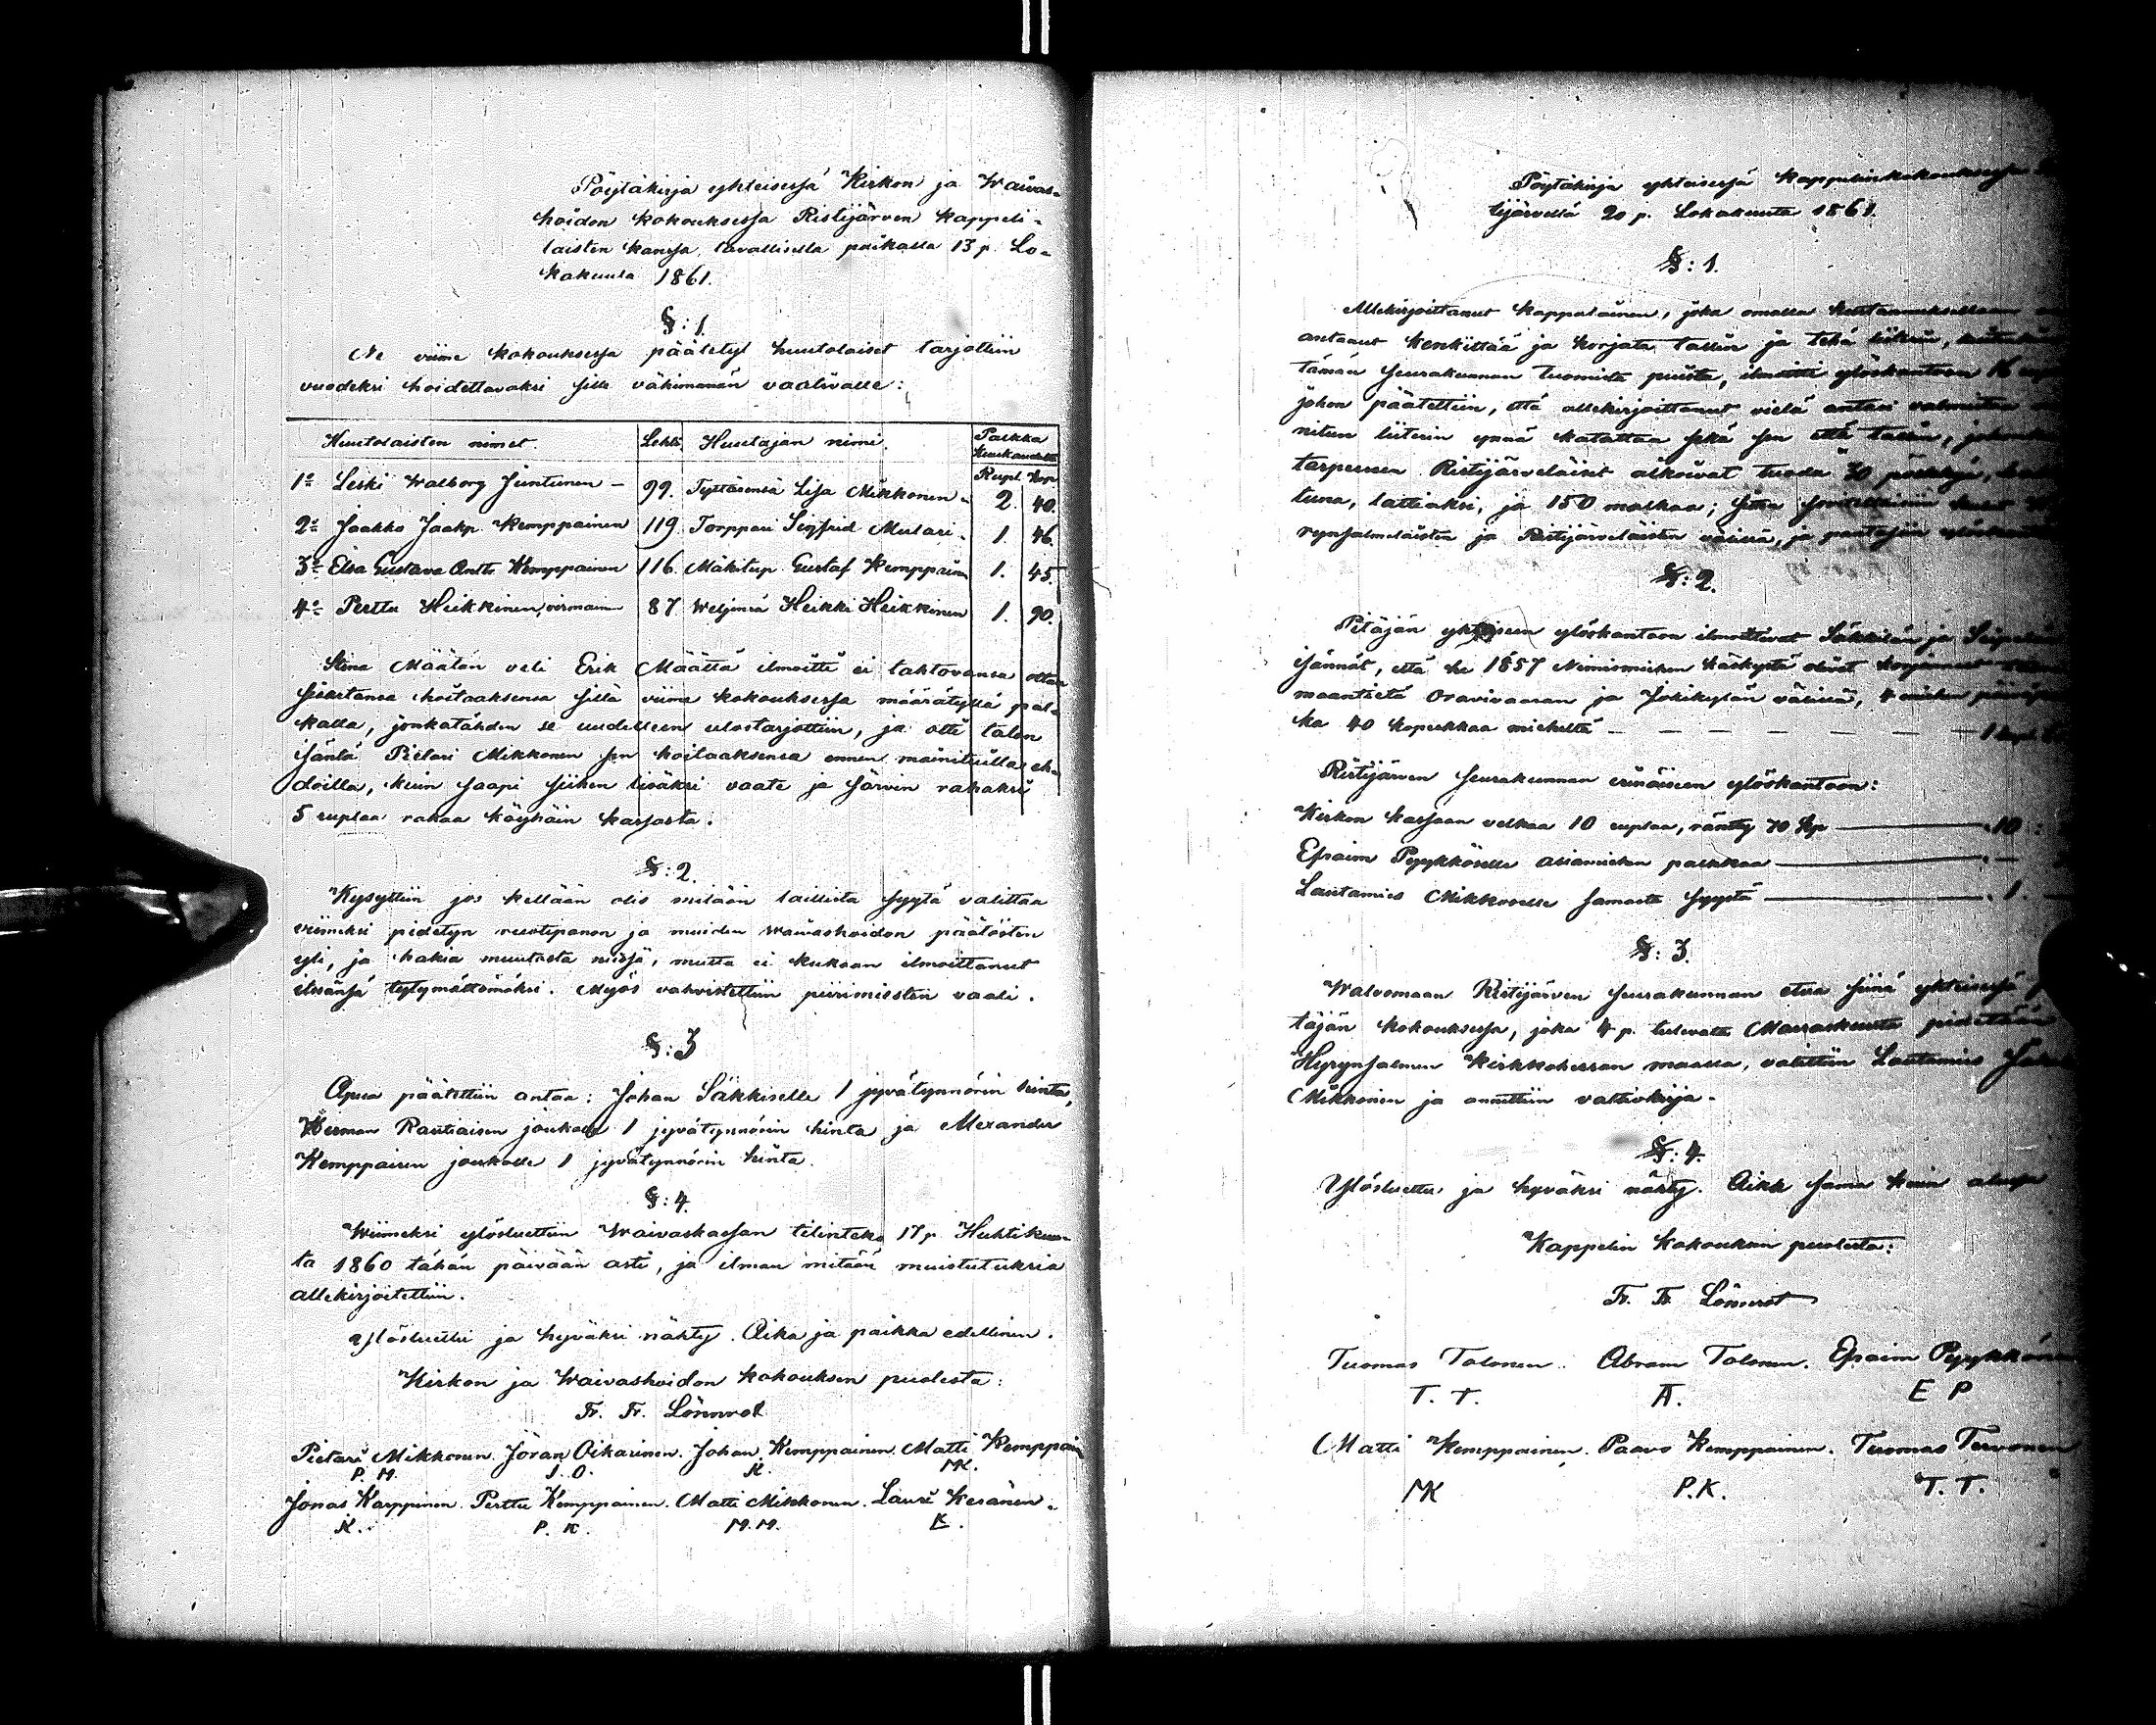 Pöytäkirja yhteisessä Kirkon ja Waivas-
hoidon kokouksessa Ristijärven kappeli-
laisten kanssa tavallisella paikalla 13 p. Lo-
kakuuta 1861.
§: 1.
Ne viime kokouksessa päätetyt huutolaiset tarjottiin
vuodeksi hoidettavaksi sille vähimmän vaativalle:
Huutolaisten nimet. Lehti. Huutajan nimi. Palkka Kuukaudelta
Rupl. Kop
1o Leski Walborg Juntunen - 99. Tyttärensä Lisa Mikkonen - 2. 40.
2o Jaakko Jaakp. Kemppainen 119. Torppari Sigfrid Mulari. 1. 46.
3o Elsa Gustava Antt. Kemppainen 116. Mäkitup. Gustaf Kemppain 1. 45.
4o Perttu Heikkinen, 87. Weljensä Heikki Heikkinen 1. 90.
Stina Määtän veli Erik Määttä ilmoitti ei tahtovansa ottaa
sisartansa hoitaaksensa sillä viime kokouksessa määrätyllä pal-
kalla, jonkatähden se uudelleen ulostarjottiin, ja otti talon
isäntä Pietari Mikkonen sen hoitaaksensa ennen mainituilla eh-
doilla, kuin saapi siihen lisäksi vaate ja särvin rahaksi
5 ruplaa rahaa köyhäin kassasta.
§: 2.
Kysyttiin jos kellään olis mitään laillista syytä valittaa
viimeksi pidetyn ruotipanon ja muiden waivashoidon päätösten
yli, ja hakia muutosta niissä, mutta ei kukaan ilmoittanut
itsiänsä tytymättömäksi. Myös vahvistettiin piirimiesten vaali.
§: 3
Apua päätettiin antaa: Johan Säkkiselle 1 jyvätynnörin hinta,
Herman Rautiaisen joukolle 1 jyvätynnörin hinta ja Alexander
Kemppaisen joukolle 1 jyvätynnörin hinta.
§: 4.
Wiimeksi ylösluettiin Waivaskassan tilinteko 17 p. Huhtikuu-
ta 1860 tähän päivään asti, ja ilman mitään muistutuksia
allekirjoitettiin.
Ylösluettu ja hyväksi nähty. Aika ja paikka edellinen.
Kirkon ja Waivashoidon kokouksen puolesta:
Fr. Fr. Lönnrot
Pietari Mikkonen. Jöran Oikarinen. Johan Kemppainen. Matti Kemppain
P. M. J. O. K. MK.
Jonas Karppinen. Perttu Kemppainen. Matti Mikkonen. Lauri Keränen.
K. P. K. M. M. K.
Pöytäkirja yhteisessä kappelinkokouksessa
tijärvellä 20 p. Lokakuuta 1861.
§: 1.
Allekirjoittanut kappalainen, joka omalla kustannuksellaan
antanut kenkittää ja korjata tallin ja tehä liiterin,
tämän seurakunnan tuomista puista, ilmoitti ylöskantoon 16
johon päätettiin, että allekirjoittanut vielä antasi valmistaa
nitun liiterin ynnä katattaa sekä sen että tallin, johonka
tarpeessa Ristijärveläiset aikoivat tuoda 30
tuna, lattiaksi, ja 150 malkaa;
rynsalmelaisten ja Ristijärveläisten välissä, ja
§: 2.
Pitäjän yhteiseen ylöskantoon ilmoittivat Säkkilän ja
isännät, että he 1857 Nimismiehen käskystä olivat korjanneet
maantietä Oravivaaran ja Jokikylän välissä, 4 miehen
ka 40 kopeekkaa mieheltä - - - - - - - 1
Ristijärven seurakunnan erinäiseen ylöskantoon:
Kirkon kassaan velkaa 10 ruplaa, ränty 70 kp — 10
Efraim Pyykköselle asiamiehen palkkaa —
Lautamies Mikkoselle samasta syystä — 1.
§: 3.
Walvomaan Ristijärven seurakunnan etua siinä yhteisessä
täjän kokouksessa, joka 4 p. tulevata Marraskuuta pidetään
Hyrynsalmen Kirkkoherran maalla, valittiin Lautamies
Mikkonen ja annettiin valtakirja.
§: 4.
Ylösluettu ja hyväksi nähty. Aika sama kuin alussa
Kappelin kokouksen puolesta:
Fr. Fr. Lönnrot
Tuomas Tolonen. Abram Tolonen. Efraim Pyykkönen
T. T. A. E P
Matti Kemppainen. Paavo Kemppainen. Tuomas Tervonen
MK P. K. T. T.